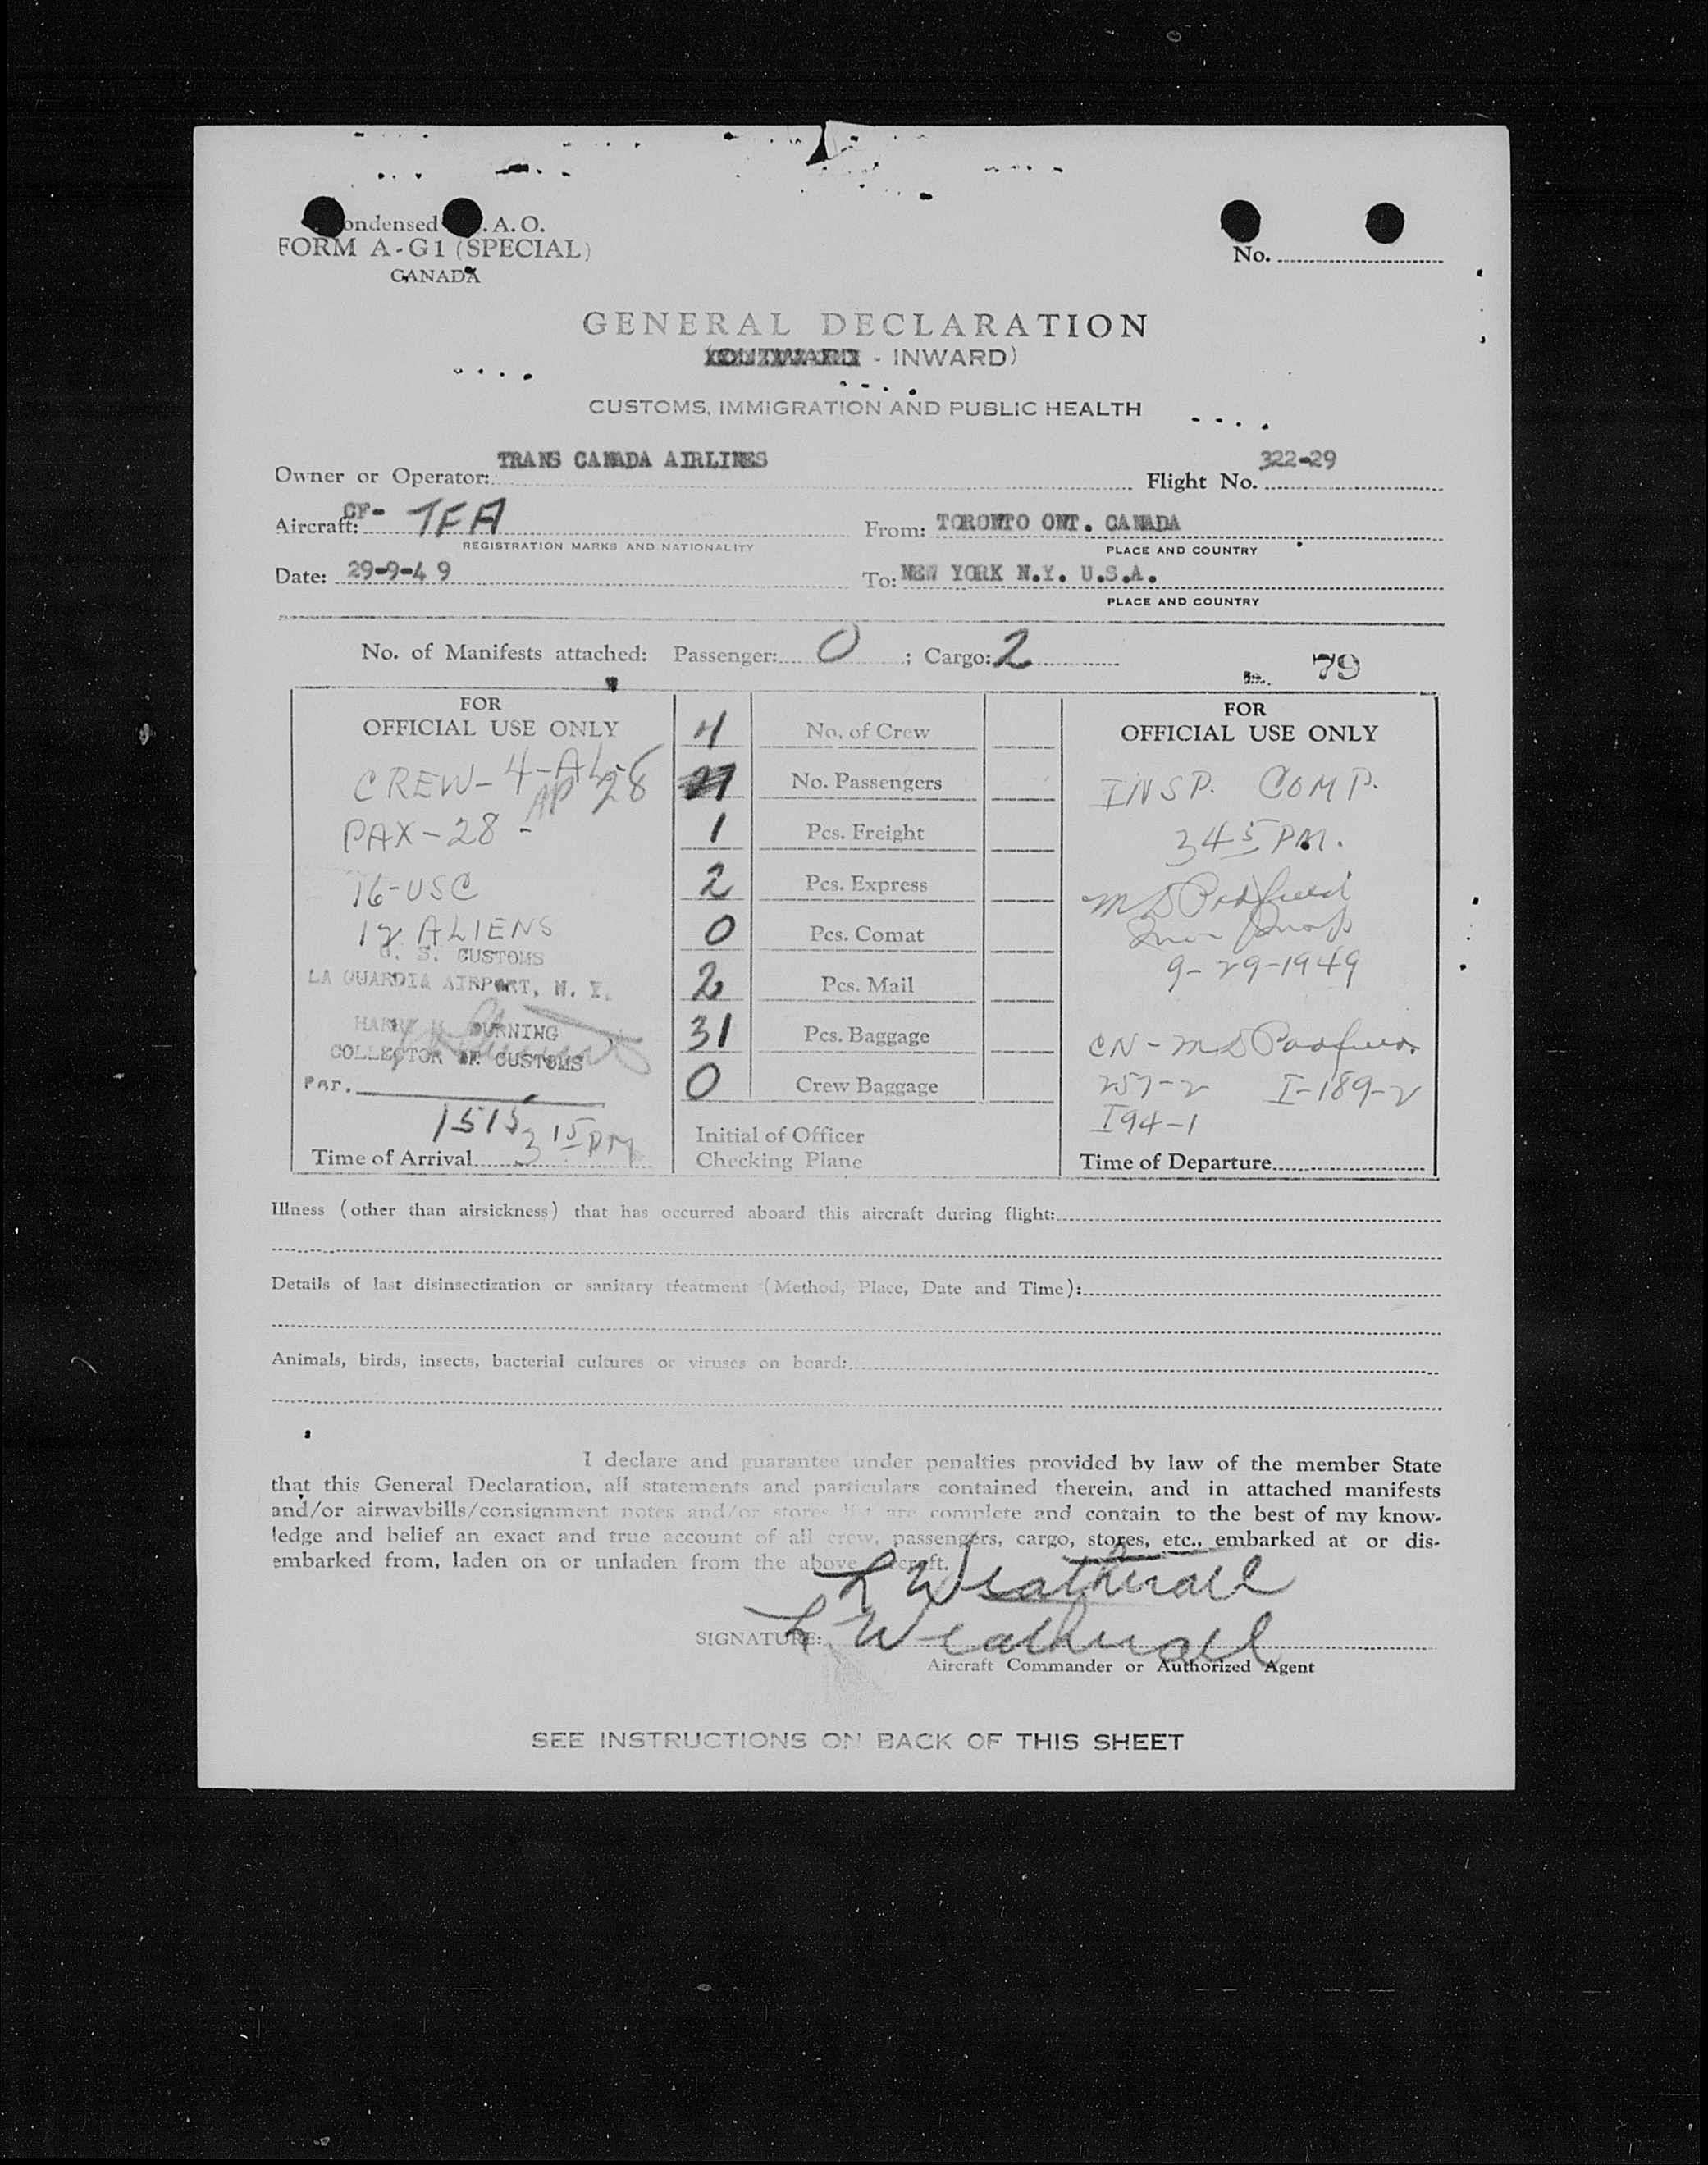 ondensed .A.O.
FORM A-G1 (SPECIAL)
CANADA
No.
GENERAL DECLARATION
- INWARD)
CUSTOMS, IMMIGRATION AND PUBLIC HEALTH
Owner or Operator: TRANS CANADA AIRLINES
Flight No. 322-29
Aircraft: CF- TFA
REGISTRATION MARKS AND NATIONALITY
From: TORONTO ONT. CANADA
PLACE AND COUNTRY
Date: 29-9-4 9
To: NEW YORK N.Y. U.S.A.
PLACE AND COUNTRY
No. of Manifests attached: Passenger: 0 ; Cargo: 2
79
FOR
OFFICIAL USE ONLY
CREW-4-AL-
AP 28
PAX-28-
16-USC
12 ALIENS
U. S. CUSTOMS
LA GUARDIA AIRPORT, N. Y.
HARRY M. DURNING
COLLECTOR OF CUSTOMS
Per.
1515
3 15 PM
Time of Arrival
4 No. of Crew
No. Passengers
1 Pcs. Freight
2 Pcs. Express
0 Pcs. Comat
2 Pcs. Mail
31 Pcs. Baggage
0 Crew Baggage
Initial of Officer
Checking Plane
FOR
OFFICIAL USE ONLY
INSP. COMP.
345 PM.
M D Padfield
9-29-1949
CN - M D Padfield
257-2 I-189-2
I94-1
Time of Departure
Illness (other than airsickness) that has occurred aboard this aircraft during flight:
Details of last disinsectization or sanitary treatment (Method, Place, Date and Time):
Animals, birds, insects, bacterial cultures or viruses on board:
I declare and guarantee under penalties provided by law of the member State
that this General Declaration, all statements and particulars contained therein, and in attached manifests
and/or airwaybills/consignment notes and/or stores list are complete and contain to the best of my know-
ledge and belief an exact and true account of all crew, passengers, cargo, stores, etc., embarked at or dis-
embarked from, laden on or unladen from the above craft.
L Weatherall
SIGNATURE: L Weatherall
Aircraft Commander or Authorized Agent
SEE INSTRUCTIONS ON BACK OF THIS SHEET